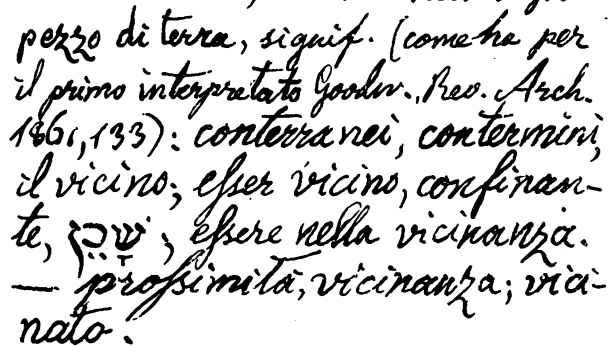 pezzo di terra, signif. (come ha per
il primo interpretato Goodw., Rev. Arch.
1861, 133): conterranei, contermini,
il vicino; esser vicino, confinan-
te, שָׁכֵן; essere nella vicinanza.
— prossimità, vicinanza; vici-
nato.